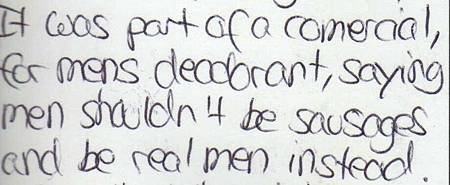 It was part of a comercial,
for mens deodorant, saying
men shouldn't be sausages
and be real men instead.